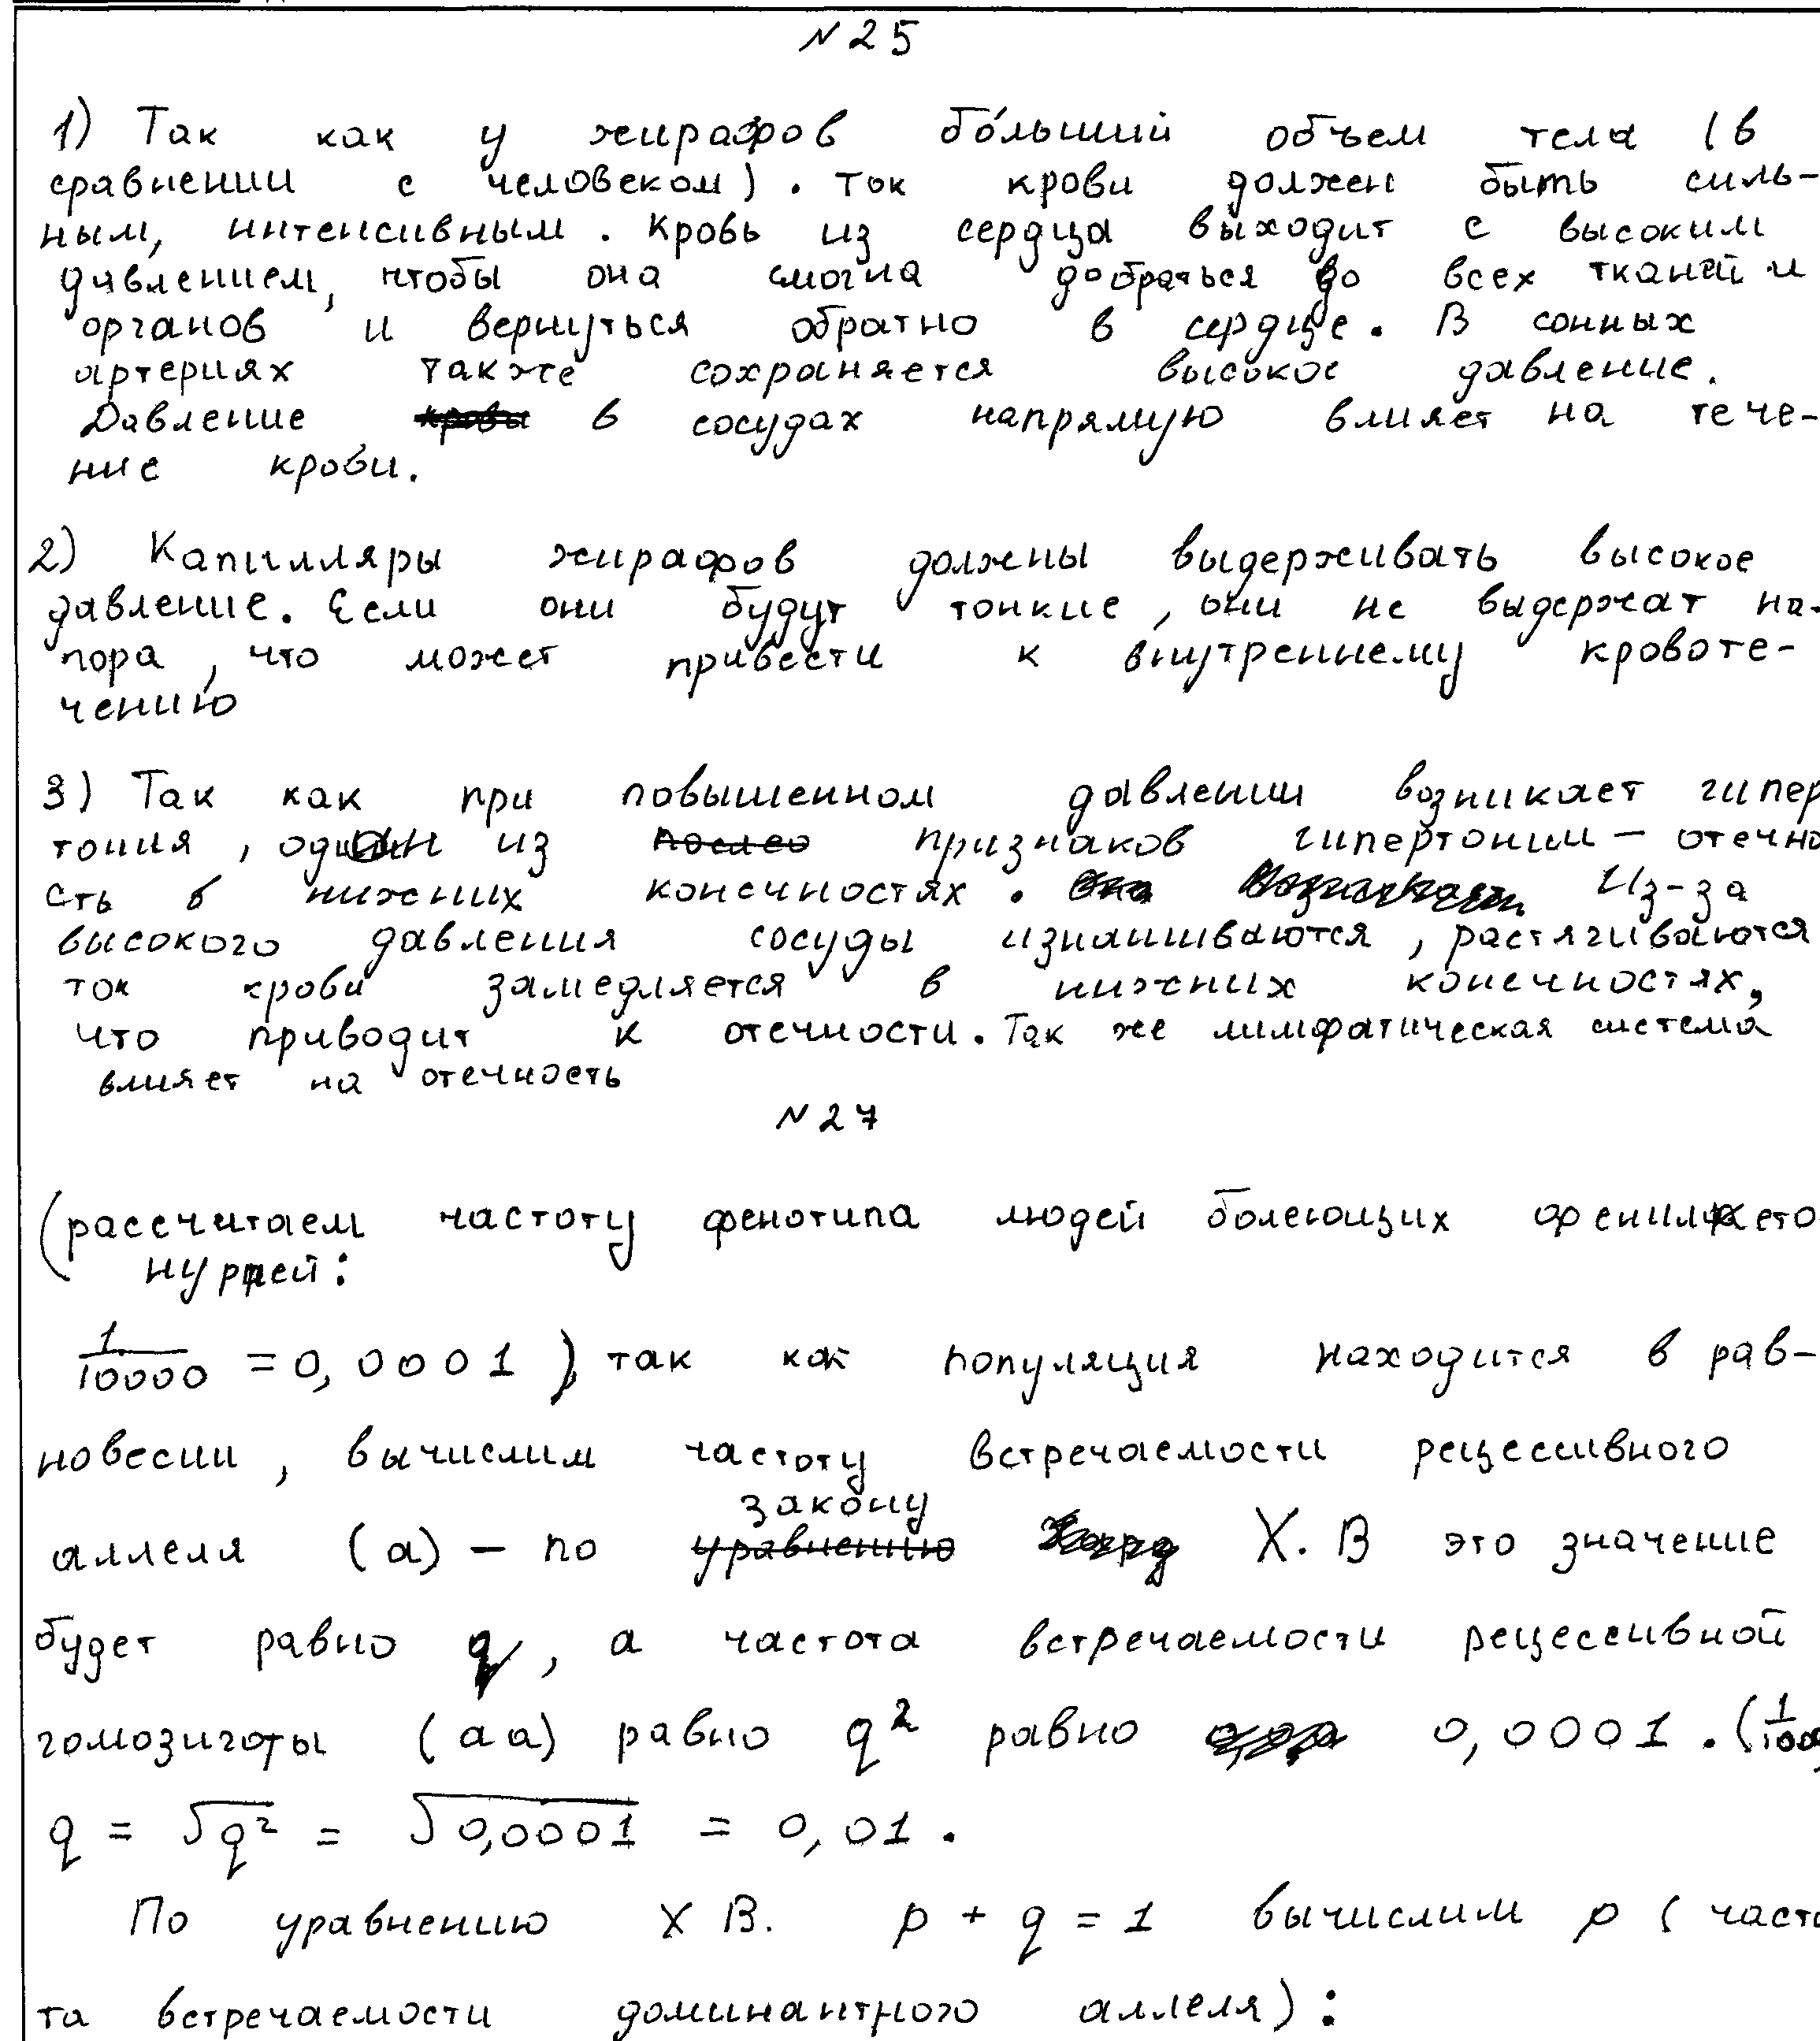 №25
1) Так как у жирафов бо́льший объем тела (в
сравнении с человеком). ток крови должен быть силь-
ным, интенсивным. Кровь из сердца выходит с высоким
давлением, чтобы она смогла добраться до всех тканей и
органов и вернуться обратно в сердце. В сонных
артериях также сохраняется высокое давление.
Давление в сосудах напрямую влияет на тече-
ние крови.
2) Капилляры жирафов должны выдерживать высокое
давление. Если они будут тонкие, они не выдержат на-
пора, что может привести к внутреннему кровоте-
чению
3) Так как при повышенном давлении возникает гипер
тония, один из признаков гипертонии – отечно
сть в нижних конечностях. Из-за
высокого давления сосуды изнашиваются, растягиваются
ток крови замедляется в нижних конечностях,
что приводит к отечности. Так же лимфатическая система
влияет на отечность
№27
(рассчитаем частоту фенотипа людей болеющих фенилкето
нурией:
1/10000 = 0,0001) так как популяция находится в рав-
новесии, вычислим частоту встречаемости рецессивного
аллеля (а) – по закону Х. В это значение
будет равно q, а частота встречаемости рецессивной
гомозиготы (аа) равно q² равно 0,0001.
q = √q² = √0,0001 = 0,01.
По уравнению Х В. p + q = 1 вычислим p (часто
та встречаемости доминантного аллеля):